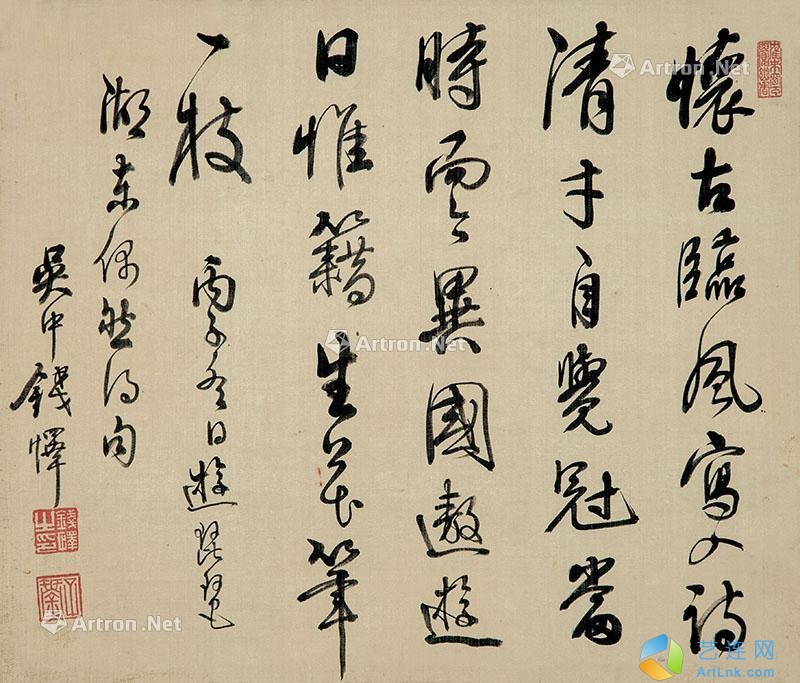 懷古臨風寫入詩
清才自覺冠當
時而今異國遨遊
日惟籍生花筆
一枝 丙子冬日遊琵琶
湖東偶然得句
吳中錢懌
Artron.Net
Artron.Net
Artron.Net
Artron.Net
艺连网
ArtLnk.com